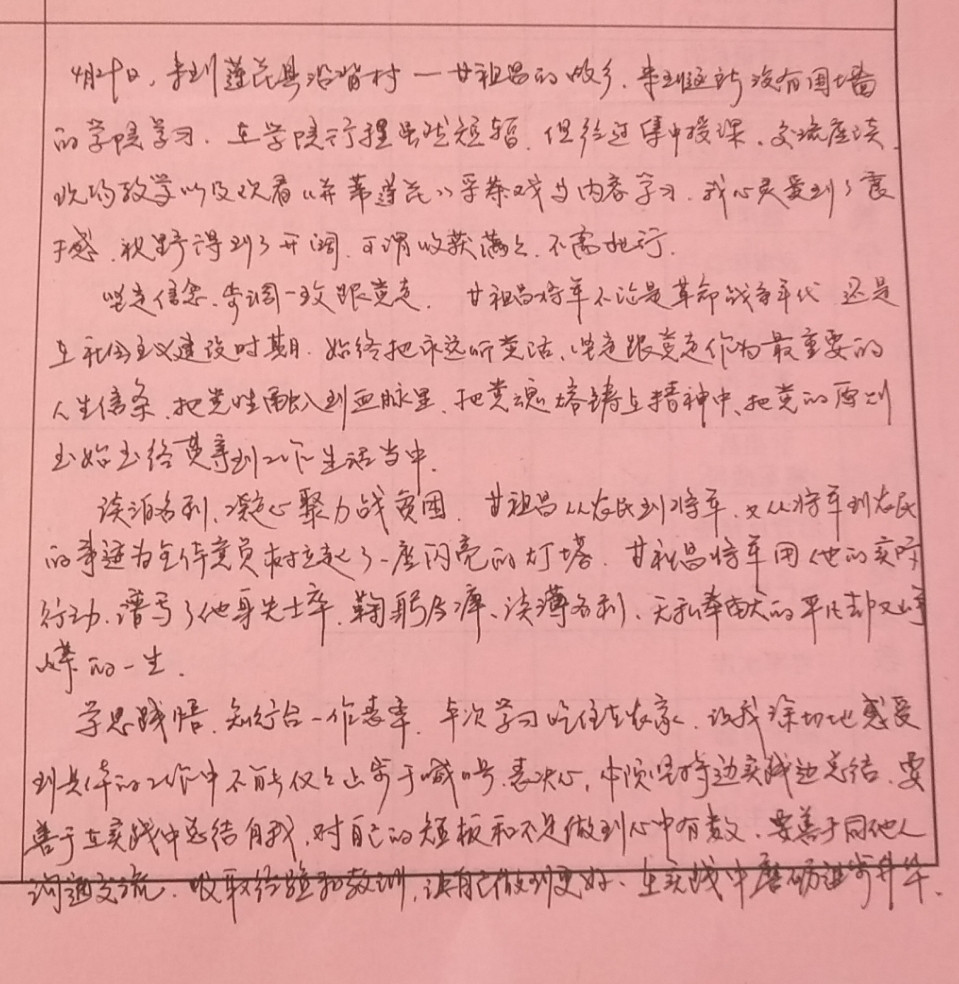 4月2十日，来到莲花县沿背村一甘祖昌的故乡，来到这所没有围墙
的学院学习。在学院行程虽然短暂，但经过集中授课、交流座谈、
现场教学以及观看《并蒂莲花》采茶戏等内容学习，我心灵受到了震
撼，视野得到了开阔，可谓收获满满，不虚此行。
坚定信念，步调一致跟党走。甘祖昌将军不论是革命战争年代还是
在社会主义建设时期，始终把永远听党话、坚定跟党走作为最重要的
人生信条，把党性融入到血脉里，把党魂熔铸在精神中，把党的原则
至始至终贯穿到工作生活当中。
淡泊名利，凝心聚力战贫困。甘祖昌从农民到将军，又从将军到农民
的事迹为全体党员树立起了一座闪亮的灯塔。甘祖昌将军用他的实际
行动，谱写了他身先士卒、鞠躬尽瘁、淡薄名利、无私奉献的平凡却又光
辉的一生。
学思践悟，知行合一作表率。本次学习吃住在农家，让我深切地感受
到具体的工作中不能仅仅止步于喊口号、表决心，必须坚持边实践边总结。要
善于在实践中总结自我，对自己的短板和不足做到心中有数，要善于同他人
沟通交流，吸取经验和教训，让自己做到更好，在实践中磨砺进步升华。